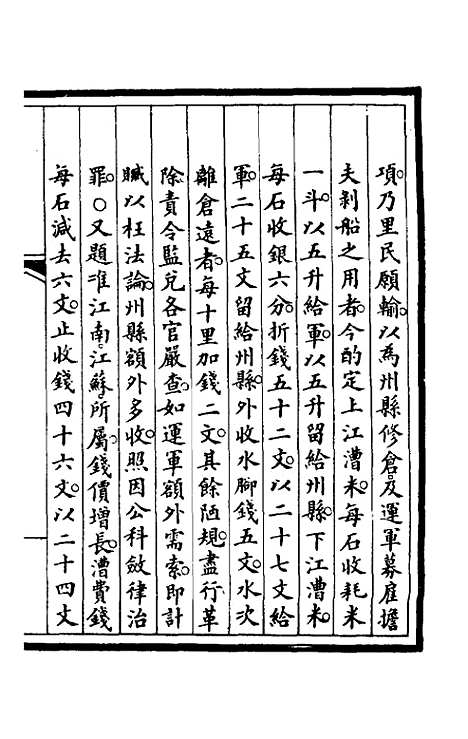 項。乃里民願輸。以爲州縣修倉。及運軍募雇擔
夫剝船之用者。今酌定上江漕米。每石收耗米
一斗。以五升給軍。以五升留給州縣。下江漕米。
每石收銀六分。折錢五十二文。以二十七文給
軍。二十五文留給州縣。外收水腳錢五文。水次
離倉遠者。每十里加錢二文。其餘陋規。盡行革
除。責令監兌各官嚴查。如運軍額外需索。即計
贓以枉法論。州縣額外多收。照因公科斂律治
罪。○又題准江南江蘇所屬。錢價增長。漕費錢
每石減去六文。止收錢四十六文。以二十四文